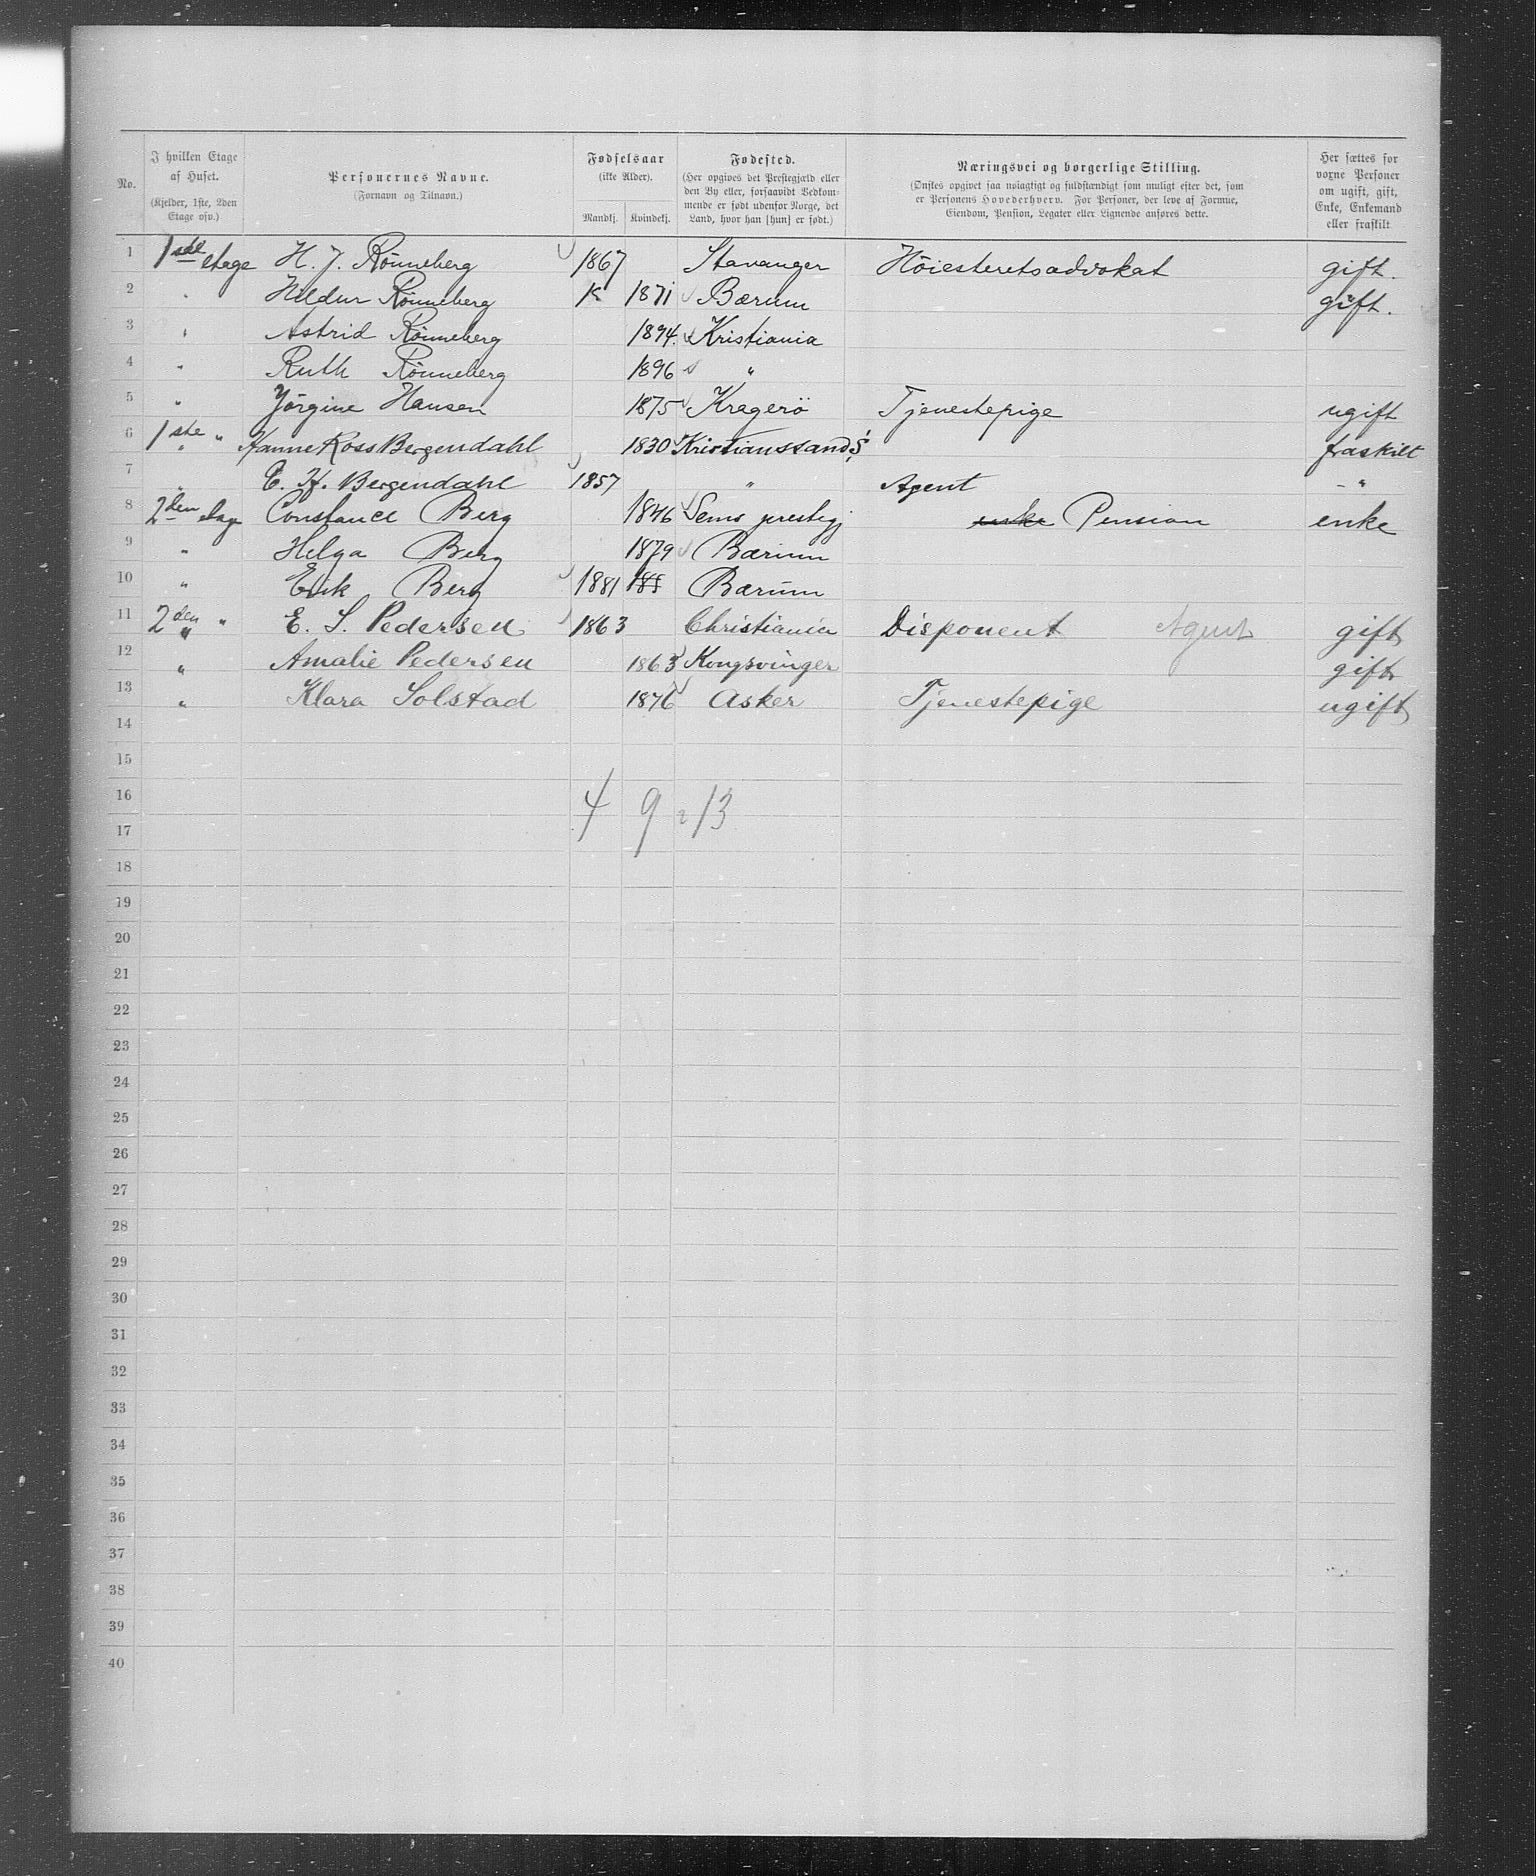 No. | I hvilken Etage af Huset. (Kjelder, 1ste, 2den Etage osv.) | Personernes Navne. (Fornavn og Tilnavn.) | Fødselsaar (ikke Alder). Mandkj. | Kvindekj. | Fødested. (Her opgives det Prestegjæld eller den By eller, forsaavidt Vedkommende er født udenfor Norge, det Land, hvor han [hun] er født.) | Næringsvei og borgerlige Stilling. (Ønskes opgivet saa nøiagtigt og fuldstændigt som muligt efter det, som er Personens Hovederhverv. For Personer, der leve af Formue, Eiendom, Pension, Legater eller Lignende anføres dette. | Her sættes for vorne Personer om ugift, gift, Enke, Enkemand eller fraskilt
1 | 1ste etage | H. J. Rönneberg | 1867 | | Stavanger | Höiesteretsadvokat | gift.
2 | " | Hildur Rönneberg | K | 1871 | Bærum | | gift.
3 | " | Astrid Rönneberg | | 1894. | Kristiania
4 | " | Ruth Rönneberg | | 1896 | "
5 | " | Jörgine Hansen | | 1875 | Kragerö | Tjenestepige | ugift
6 | 1ste " | Hanne Ross Bergendahl | | 1830 | Kristianssand S | | fraskilt
7 | " | C. H. Bergendahl | 1857 | | " | Agent | - "
8 | 2den etage | Constance Berg | | 1846 | Sems prestegj | enke Pension | enke
9 | " | Helga Berg | | 1879 | Bærum
10 | " | Erik Berg | 1881 | 188 | Bærum
11 | 2den " | E. S. Pedersen | 1863 | | Christiania | Disponent Agent | gift
12 | " | Amalie Pedersen | | 1863 | Kongsvinger | | gift
13 | " | Klara Solstad | | 1876 | Asker | Tjenestepige | ugift
14
15
16 4 9 = 13
17
18
19
20
21
22
23
24
25
26
27
28
29
30
31
32
33
34
35
36
37
38
39
40